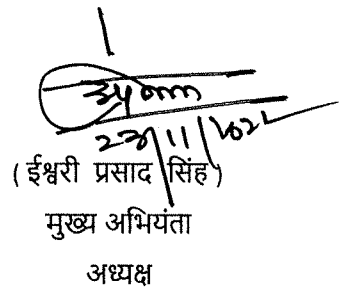 23/11/2022
( ईश्वरी प्रसाद सिंह )
मुख्य अभियंता
अध्यक्ष